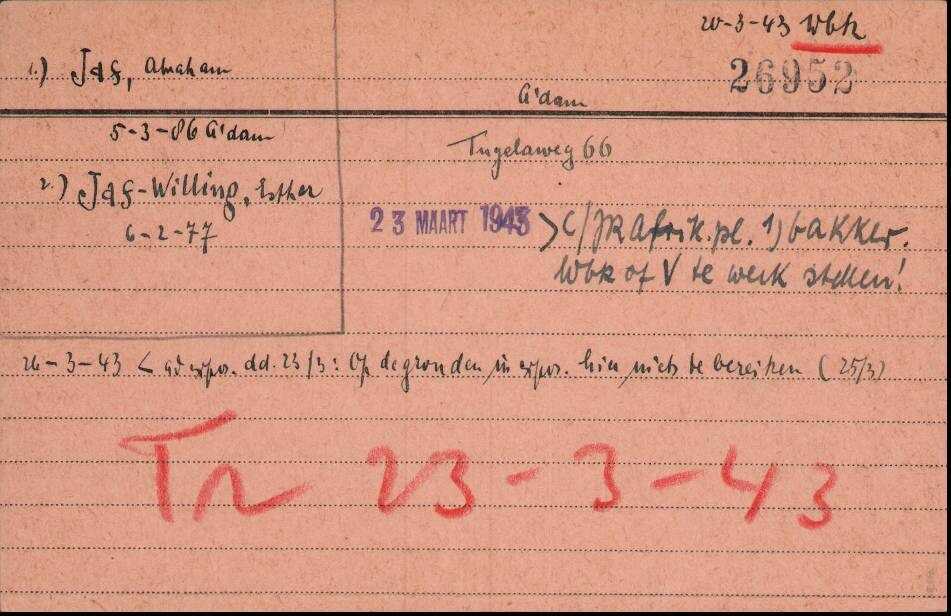 20-3-43 Wbk
1.) Jas, Abraham
26952
A'dam
5-3-86 A'dam
Tugelaweg 66
2.) Jas-Willing, Esther
6-2-77
23 MAART 1943 > C/JR Afrik.pl. 1) bakker.
Wbk of V te werk stellen!
26-3-43 < ad expos. dd. 23/3: Op de gronden in expos. hier niets te bereiken (25/3)
Tr 23-3-43